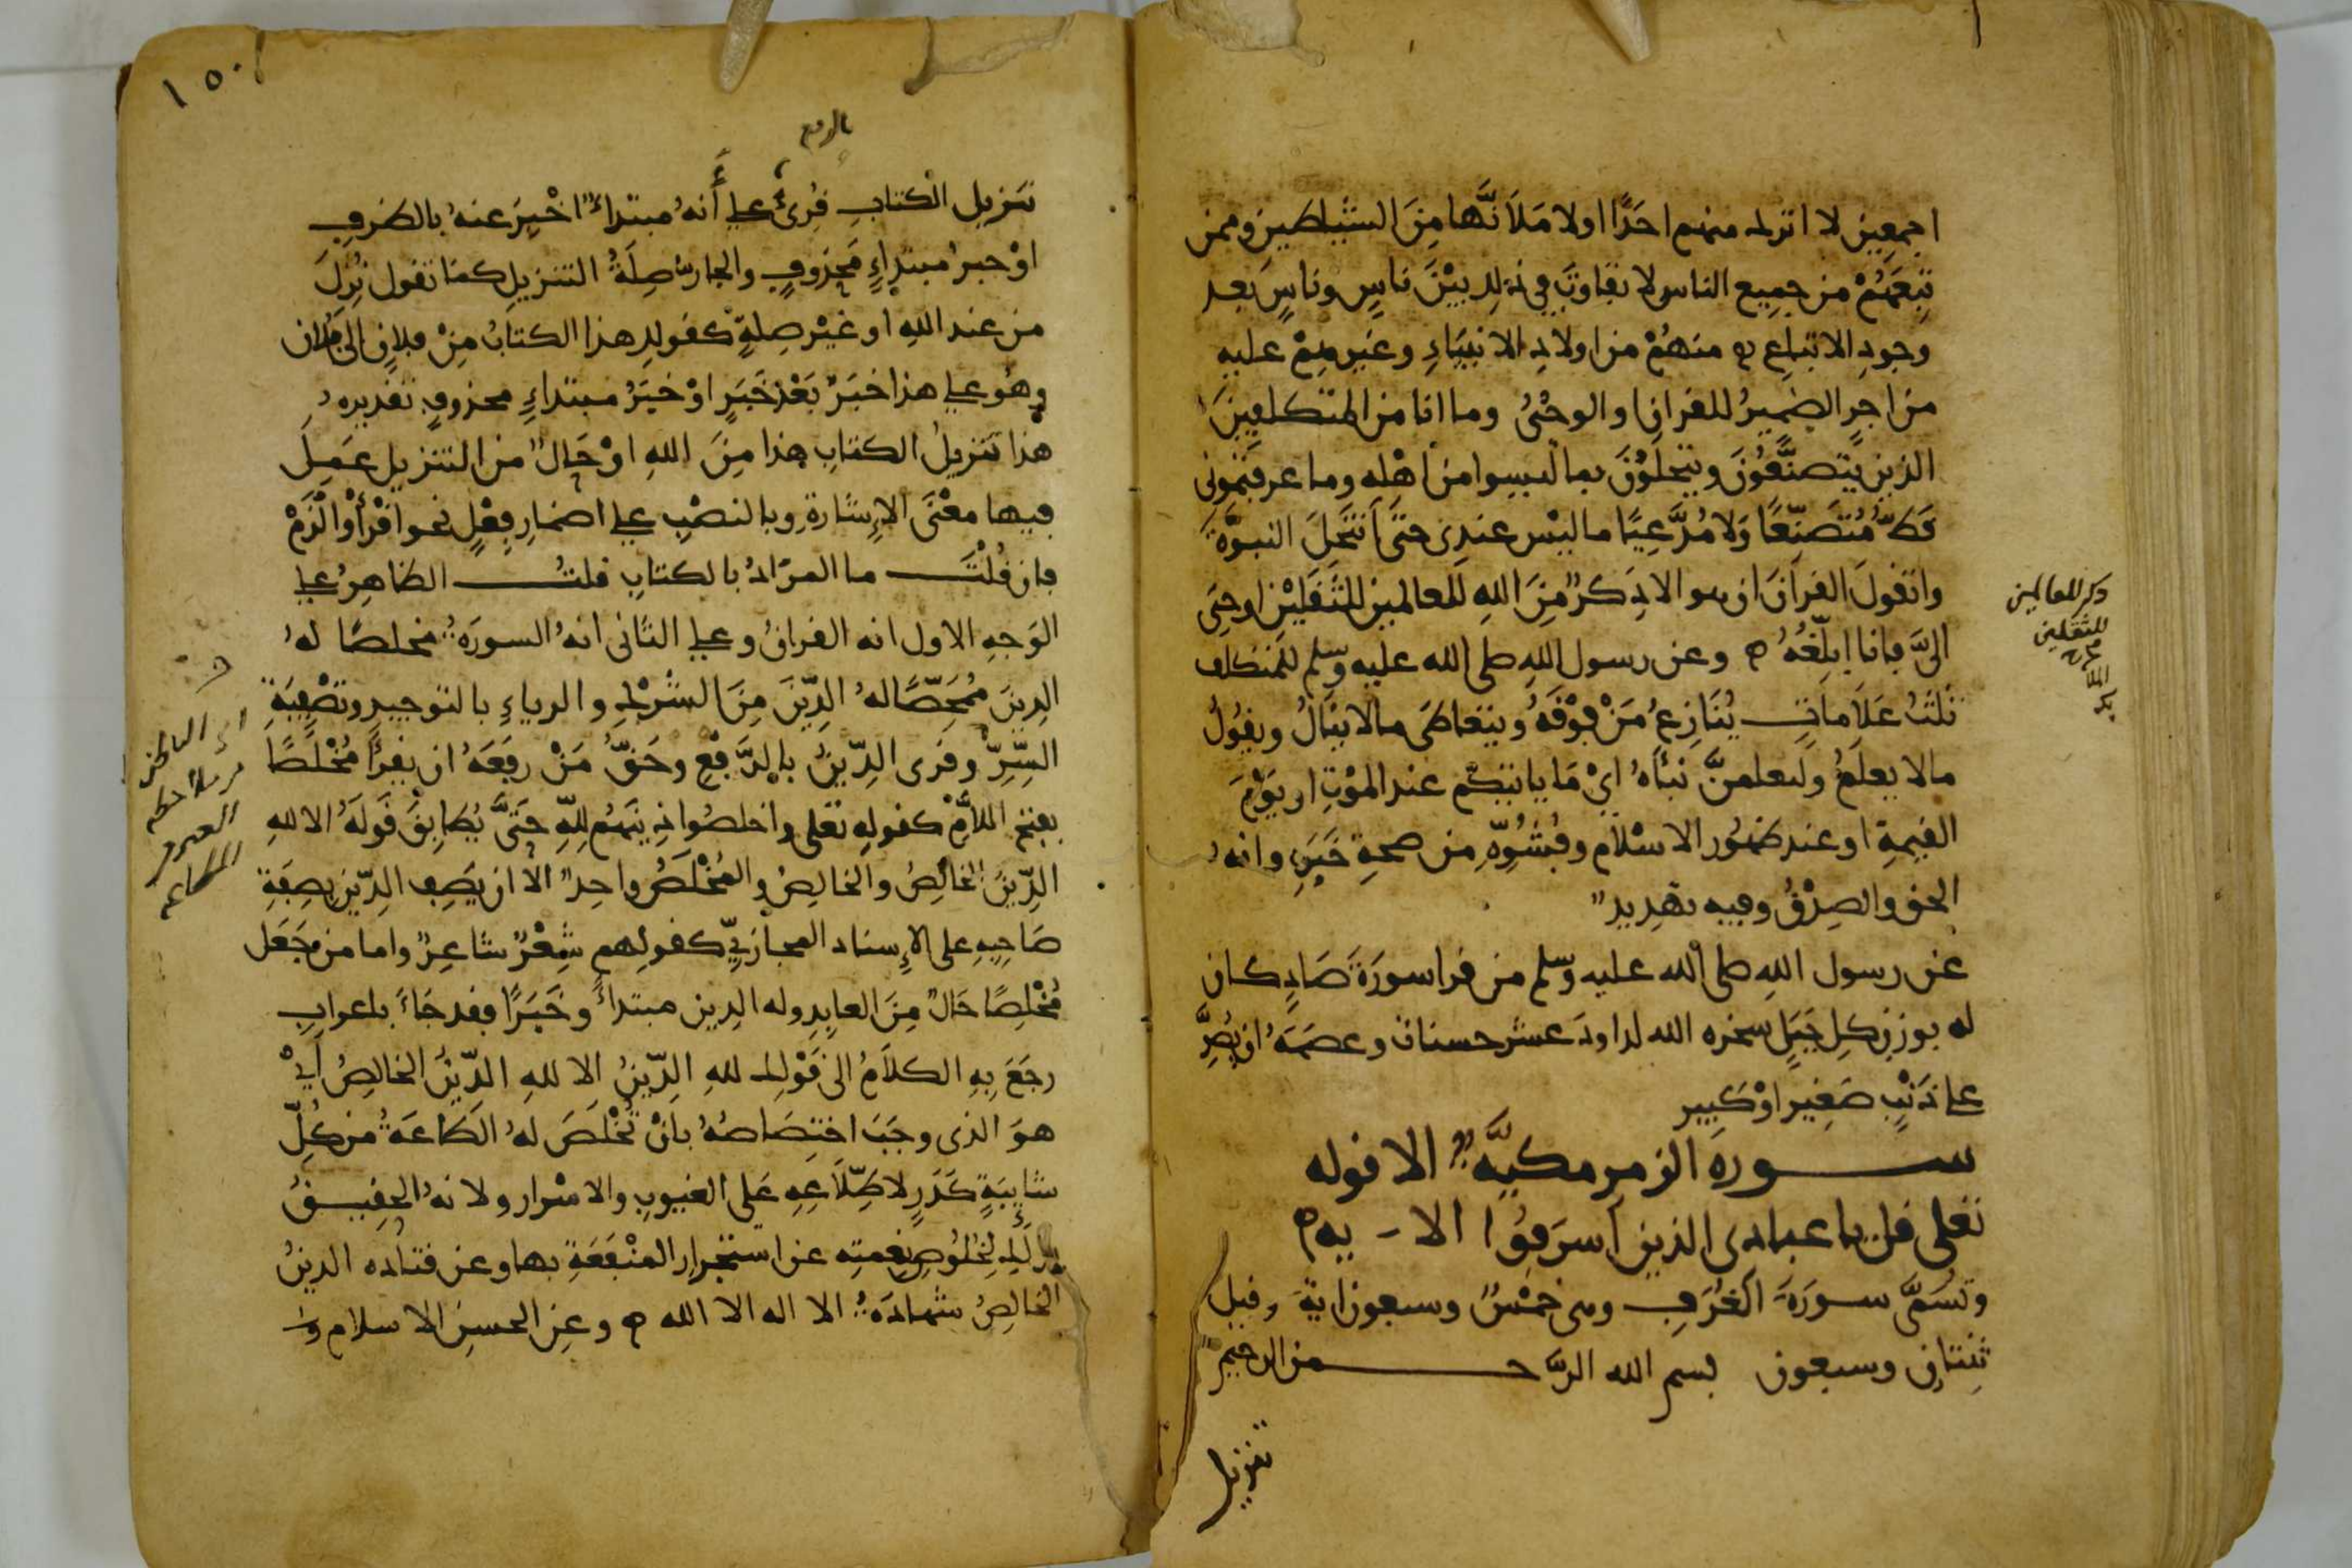 اجمعين لا اترك منهم احدًا اولا ملانّها من الشياطين وممن
تبعهُمْ من جميع الناس لا تفاوت في ذلك بيْن ناسٍ وناسٍ بعد
وجود الاتباع منهُمْ من اولاد الانبياءِ وغيرهمْ عليه
من اجرٍ الضميرُ للقران او الوحْىُ وما انا من المتكلفين
الذين يتصنّعُون ويتحلوْن بما ليسوا من اهْله وما عرفتمونى
قطّ مُتَصنّعًا ولا مُدّعِيًا ما ليْس عندى حتى انتحل النبوّة
واتقول القران ان هو الا ذكرٌ من الله للعالمين للثقليْن اوحى
الىّ فانا ابلّغُهُ وعن رسول الله صلى الله عليه وسلم للمتكلف
ثلثُ علامات يُنازعُ منْ فوْقهُ ويتعاطى ما لا ينالُ ويقُولُ
ما لا يعلمُ ولتعلمنّ نبأهُ اىْ ما ياتيكم عند الموْت او يوْم
القيمة او عند ظهُور الاسْلام وفُشُوّه من صحة خبره وانهُ
الحق والصدْقُ وفيه تهديد
عن رسول الله صلى الله عليه وسلم من قرا سورة صادٍ كان
له بوزن كل جبلٍ سخره الله لداود عشر حسنات وعصمهُ ان يُصرّ
على ذنْبٍ صغير اوْ كبير
سورة الزمر مكيّة الا قوله
تعلى قل يا عبادى الذين اسرفُوا الاية
وتسمّى سورة الغُرف وهى خمْسٌ وسبعون اية وقيل
ثنتان وسبعون بسم الله الرّحمن الرحيم
تنزيل
ذكر للعالمين
للثقلين
١٥٠
بالرفع
تنزيل الْكتاب قُرئ على أنهُ مبتداءٌ اخْبر عنهُ بالظرف
اوْ خبرُ مبتداءٍ محذوفٍ والجارّ صلةُ التنزيل كما تقول نُزل
من عند الله او غيْر صلةٍ كقولك هذا الكتابُ منْ فلانٍ الى فلان
وهُو على هذا خبرٌ بعْد خبرٍ اوْ خبرُ مبتداءٍ محذوفٍ تقديرهُ
هذا تنزيلُ الكتاب هذا من الله اوْ حالٌ من التنزيل عمل
فيها معْنى الإشارة وبالنصْب على اضمار فعْلٍ نحو اقْرأْ او الْزمْ
فان قُلْت ما المرادُ بالكتاب قلتُ الظاهرُ على
الوجه الاول انه القرانُ وعلى الثانى انهُ السورةُ مخلصًا لهُ
الدين مُمحّضًا لهُ الدّين من الشرْك والرياءِ بالتوحيد وتصْفية
السّرّ وقرى الدّينُ بالرّفْع وحقّ منْ رفعهُ ان يقرأ مُخْلصًا
بفتح اللامّ كقوله تعلى واخلصُوا دينهُم للّه حتى يُطابق قولهُ الا لله
الدّينُ الخالصُ والخالصُ والمُخْلصُ واحدٌ الا ان يصف الدّين بصفة
صاحبه على الإسناد المجازىّ كقولهم شعْرٌ شاعرٌ واما من جعل
مُخْلصًا حالٌ من العابد وله الدين مبتداءً وخبرًا فقد جاء باعرابٍ
رجع به الكلامُ الى قوْلك لله الدّينُ الا لله الدّينُ الخالصُ أىْ
هو الذى وجب اختصاصُهُ بانْ تُخْلص لهُ الطاعةُ من كُلّ
شايبة كدرٍ لاطّلاعه على الغيوب والاسْرار ولانهُ الحقيقُ
بذلك لخُلُوص نعمته عن استجرار المنْفعة بها وعن قتاده الدينُ
الخالصُ شهادةُ الا اله الا الله وعن الحسن الاسلام و